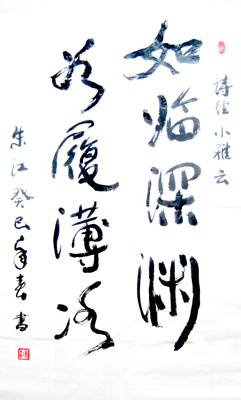 诗经小雅云
如临深渊
如履薄冰
朱江癸巳年春書